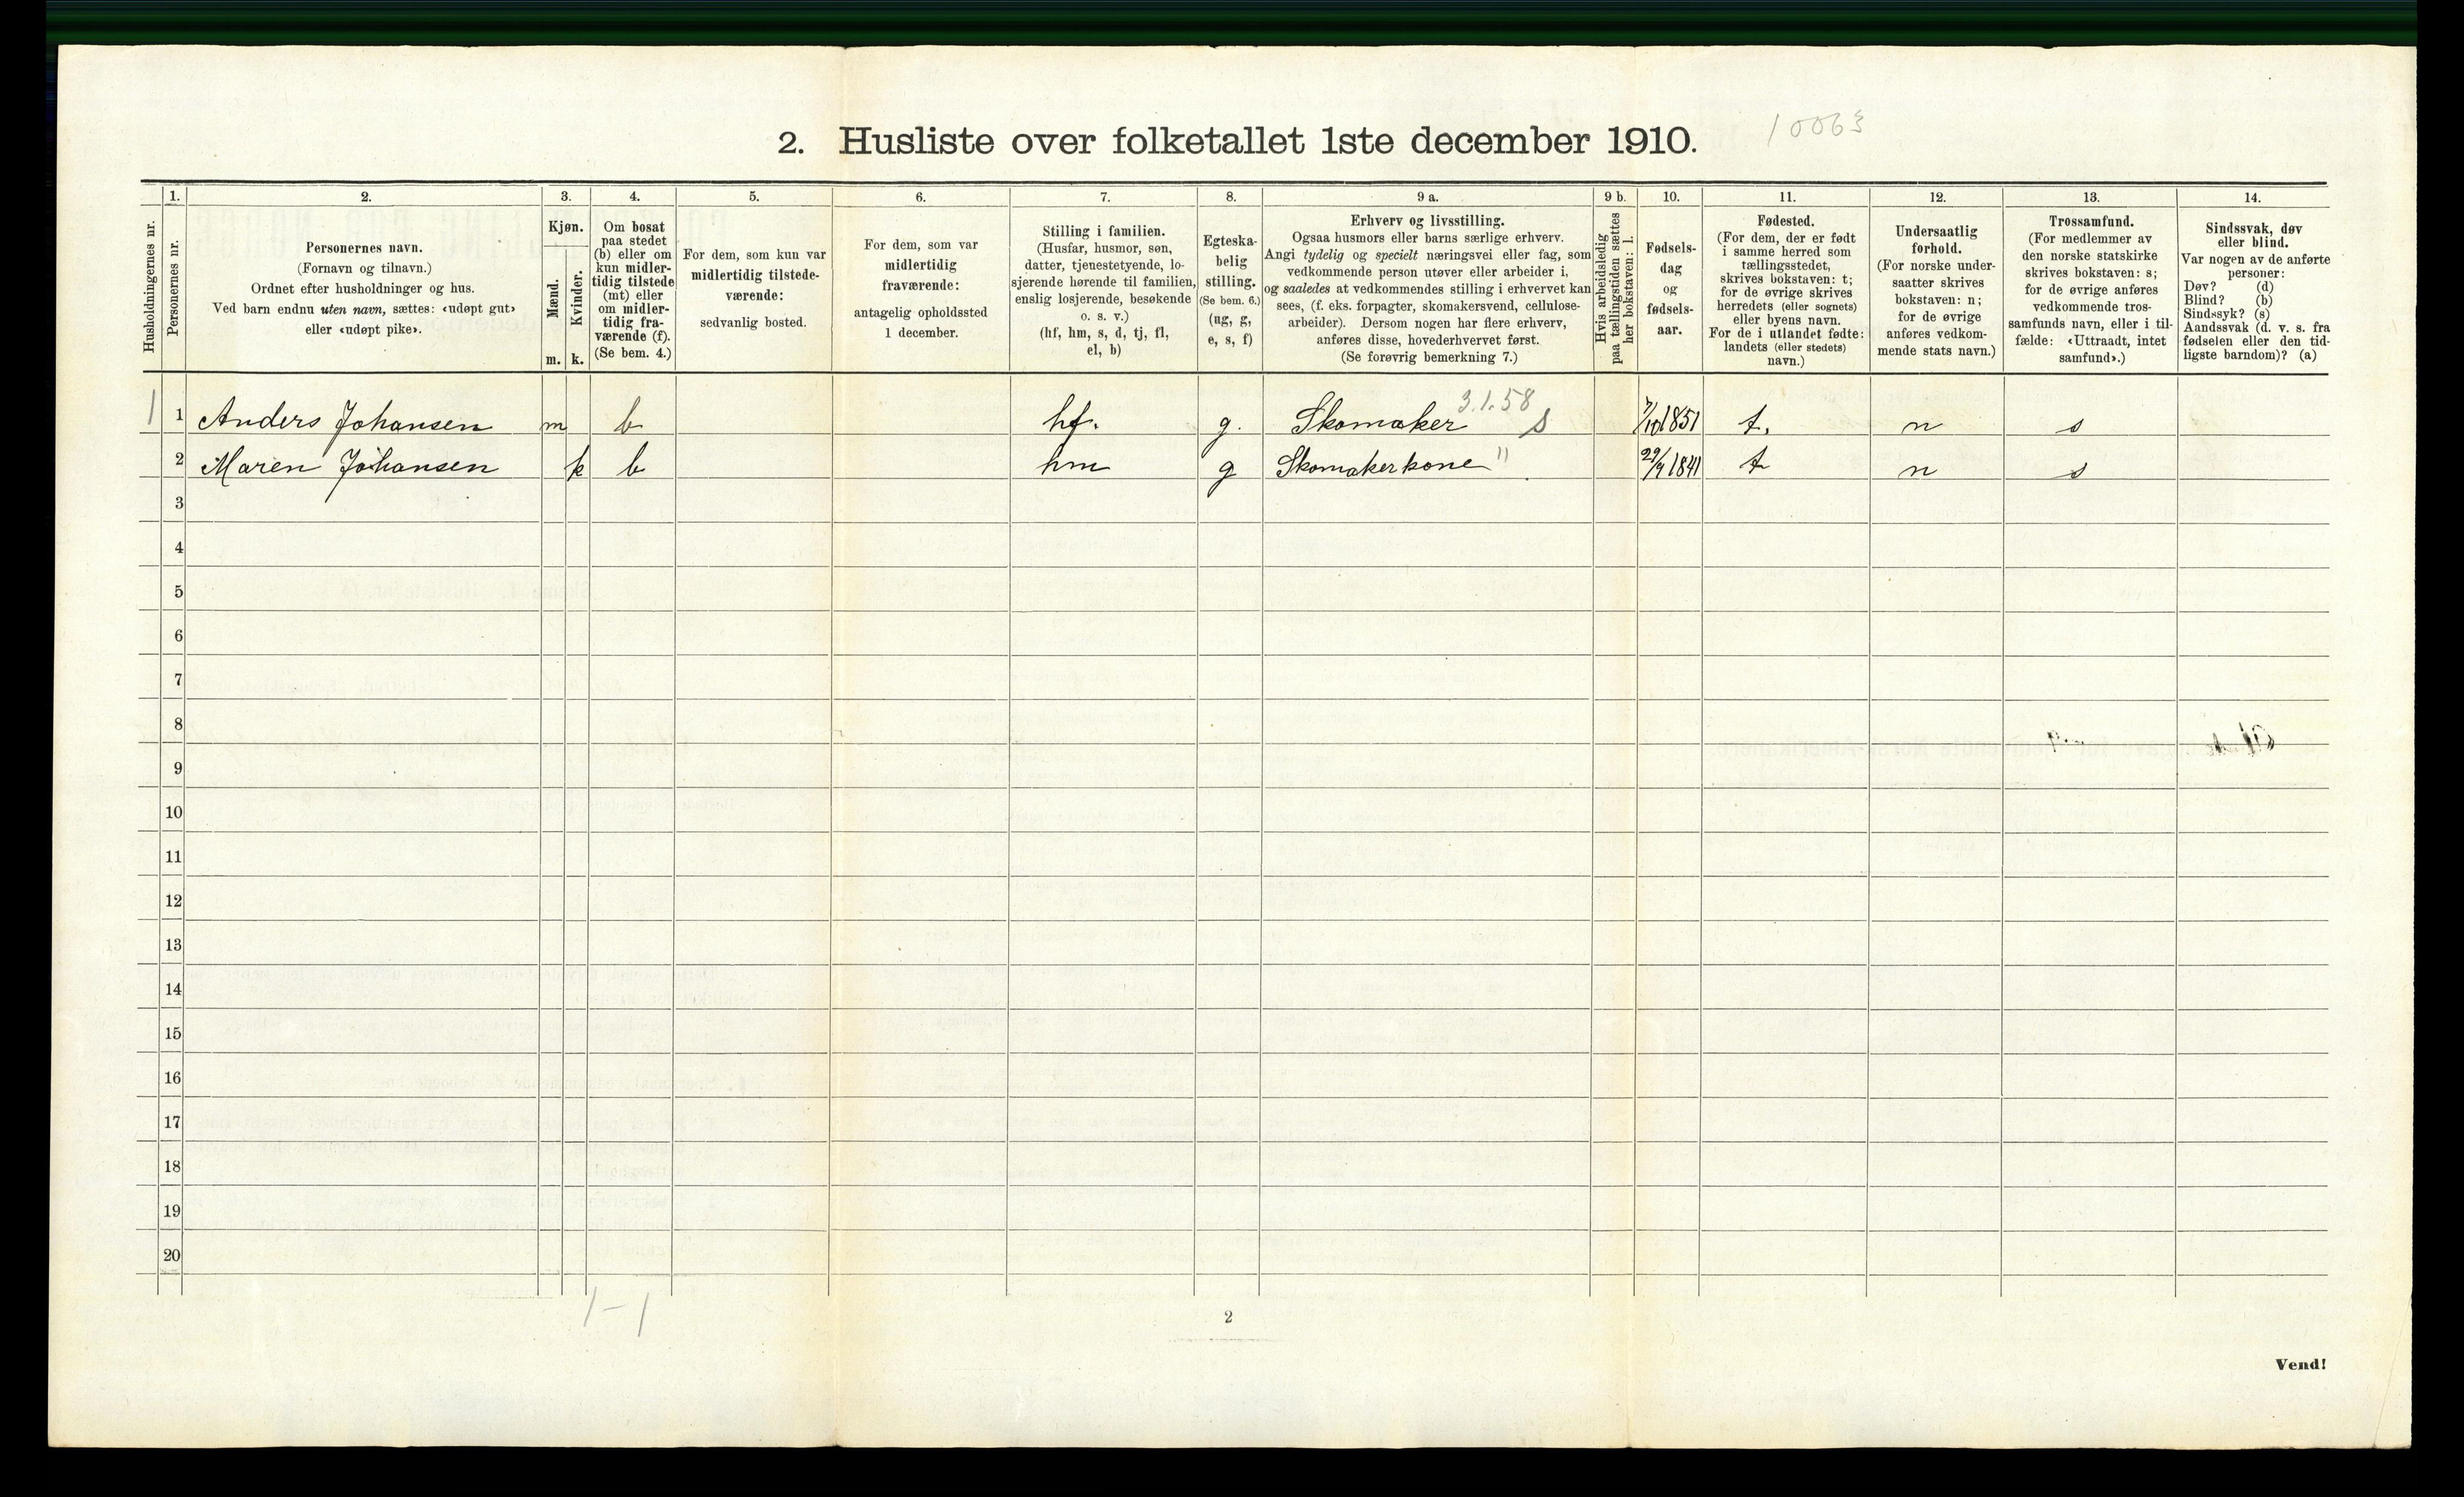 2. Husliste over folketallet 1ste december 1910.
10063
Husholdningernes nr.
1.
Personernes nr.
2.
Personernes navn.
(Fornavn og tilnavn.)
Ordnet efter husholdninger og hus.
Ved barn endnu uten navn, sættes: «udøpt gut»
eller «udøpt pike».
3.
Kjøn.
Mænd.
m.
Kvinder.
k.
4.
Om bosat
paa stedet
(b) eller om
kun midler-
tidig tilstede
(mt) eller
om midler-
tidig fra-
værende (f).
(Se bem. 4.)
5.
For dem, som kun var
midlertidig tilstede-
værende:
sedvanlig bosted.
6.
For dem, som var
midlertidig
fraværende:
antagelig opholdssted
1 december.
7.
Stilling i familien.
(Husfar, husmor, søn,
datter, tjenestetyende, lo-
sjerende hørende til familien,
enslig losjerende, besøkende
o. s. v.)
(hf, hm, s, d, tj, fl,
el, b)
8.
Egteska-
belig
stilling.
(Se bem. 6.)
(ug, g,
e, s, f)
9 a.
Erhverv og livsstilling.
Ogsaa husmors eller barns særlige erhverv.
Angi tydelig og specielt næringsvei eller fag, som
vedkommende person utøver eller arbeider i,
og saaledes at vedkommendes stilling i erhvervet kan
sees, (f. eks. forpagter, skomakersvend, cellulose-
arbeider). Dersom nogen har flere erhverv,
anføres disse, hovederhvervet først.
(Se forøvrig bemerkning 7.)
9 b.
Hvis arbeidsledig
paa tællingstiden sættes
her bokstaven: l.
10.
Fødsels-
dag
og
fødsels-
aar.
11.
Fødested.
(For dem, der er født
i samme herred som
tællingsstedet,
skrives bokstaven: t;
for de øvrige skrives
herredets (eller sognets)
eller byens navn.
For de i utlandet fødte:
landets (eller stedets)
navn.)
12.
Undersaatlig
forhold.
(For norske under-
saatter skrives
bokstaven: n;
for de øvrige
anføres vedkom-
mende stats navn.)
13.
Trossamfund.
(For medlemmer av
den norske statskirke
skrives bokstaven: s;
for de øvrige anføres
vedkommende tros-
samfunds navn, eller i til-
fælde: «Uttraadt, intet
samfund».)
14.
Sindssvak, døv
eller blind.
Var nogen av de anførte
personer:
Døv? (d)
Blind? (b)
Sindssyk? (s)
Aandssvak (d. v. s. fra
fødselen eller den tid-
ligste barndom)? (a)
1 1 Anders Johansen m b hf. g. Skomaker 3.1.58 s 7/10 1851 t. n s
2 Maren Johansen k b hm g Skomakerkone " 29/9 1841 t n s
3
4
5
6
7
8
9
10
11
12
13
14
15
16
17
18
19
20
1-1
2
Vend!